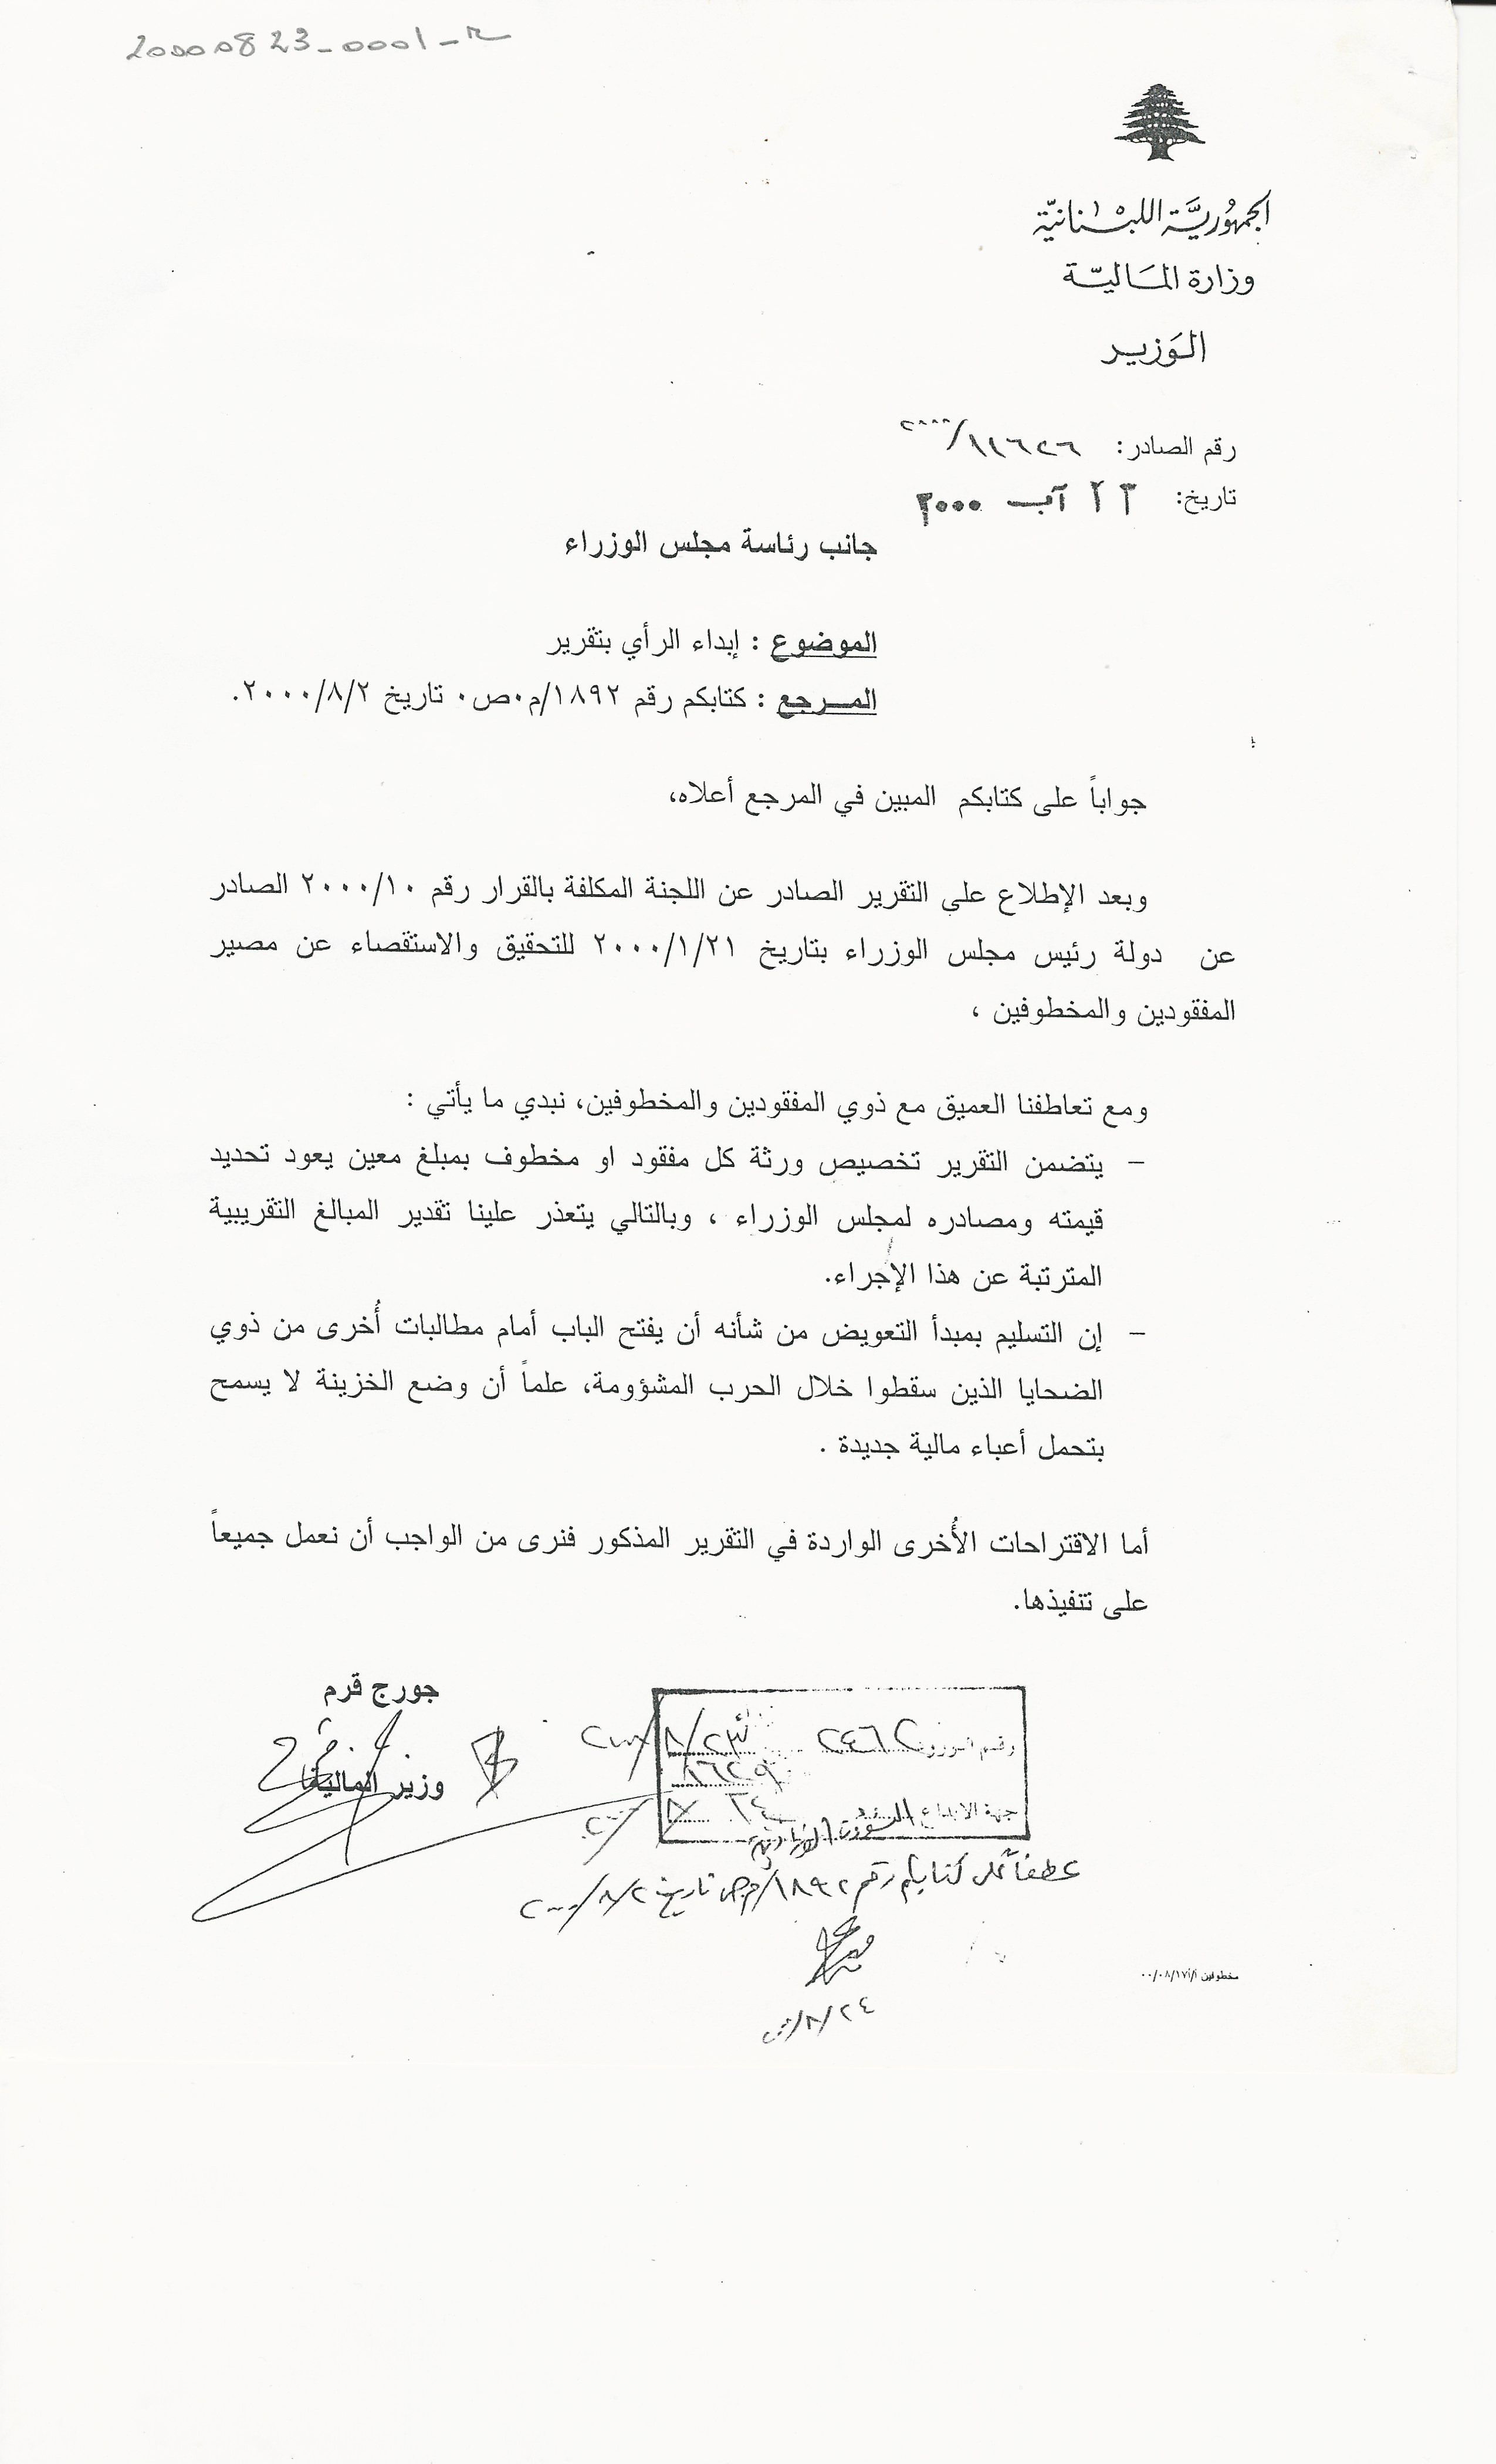 20000823_0001_R
الجمهوريّة اللبنانيّة
وزارة الماليّة
الوزير
رقم الصادر:
تاريخ: ٢٢ آب ٢٠٠٠
جانب رئاسة مجلس الوزراء
الموضوع : إبداء الرأي بتقرير
المرجع : كتابكم رقم ١٨٩٢/م٠ص٠ تاريخ ٢٠٠٠/٨/٢.
جواباً على كتابكم المبين في المرجع أعلاه،
وبعد الإطلاع على التقرير الصادر عن اللجنة المكلفة بالقرار رقم ٢٠٠٠/١٠ الصادر
عن دولة رئيس مجلس الوزراء بتاريخ ٢٠٠٠/١/٢١ للتحقيق والاستقصاء عن مصير
المفقودين والمخطوفين ،
ومع تعاطفنا العميق مع ذوي المفقودين والمخطوفين، نبدي ما يأتي :
– يتضمن التقرير تخصيص ورثة كل مفقود او مخطوف بمبلغ معين يعود تحديد
قيمته ومصادره لمجلس الوزراء ، وبالتالي يتعذر علينا تقدير المبالغ التقريبية
المترتبة عن هذا الإجراء.
– إن التسليم بمبدأ التعويض من شأنه أن يفتح الباب أمام مطالبات أُخرى من ذوي
الضحايا الذين سقطوا خلال الحرب المشؤومة، علماً أن وضع الخزينة لا يسمح
بتحمل أعباء مالية جديدة .
أما الاقتراحات الأُخرى الواردة في التقرير المذكور فنرى من الواجب أن نعمل جميعاً
على تنفيذها.
جورج قرم
وزير المالية
رقم الورود ٢٤٦٢ ٢٣/٨/٢٠٠٠
جهة الايداع
عطفاً على كتابكم رقم ١٨٩٢/م.ص تاريخ ٢٠٠٠/٨/٢
٢٤/٨/٢٠٠٠
مخطوفين أ/١٧/٠٨/٠٠